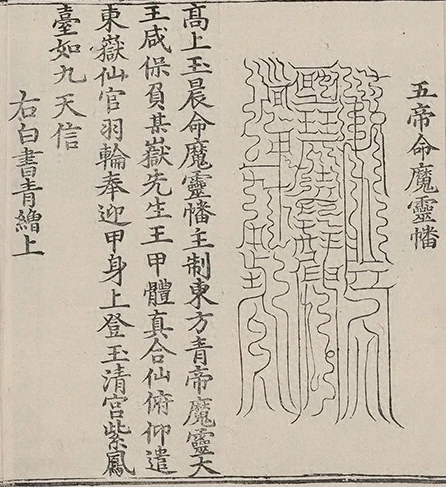 五帝命魔靈幡
高上玉晨命魔靈幡主制東方青帝魔靈大
王咸保負某嶽先生王甲體真合仙俯仰遣
東嶽仙官羽輪奉迎甲身上登玉清宮紫鳳
臺如九天信
右白書青繒上